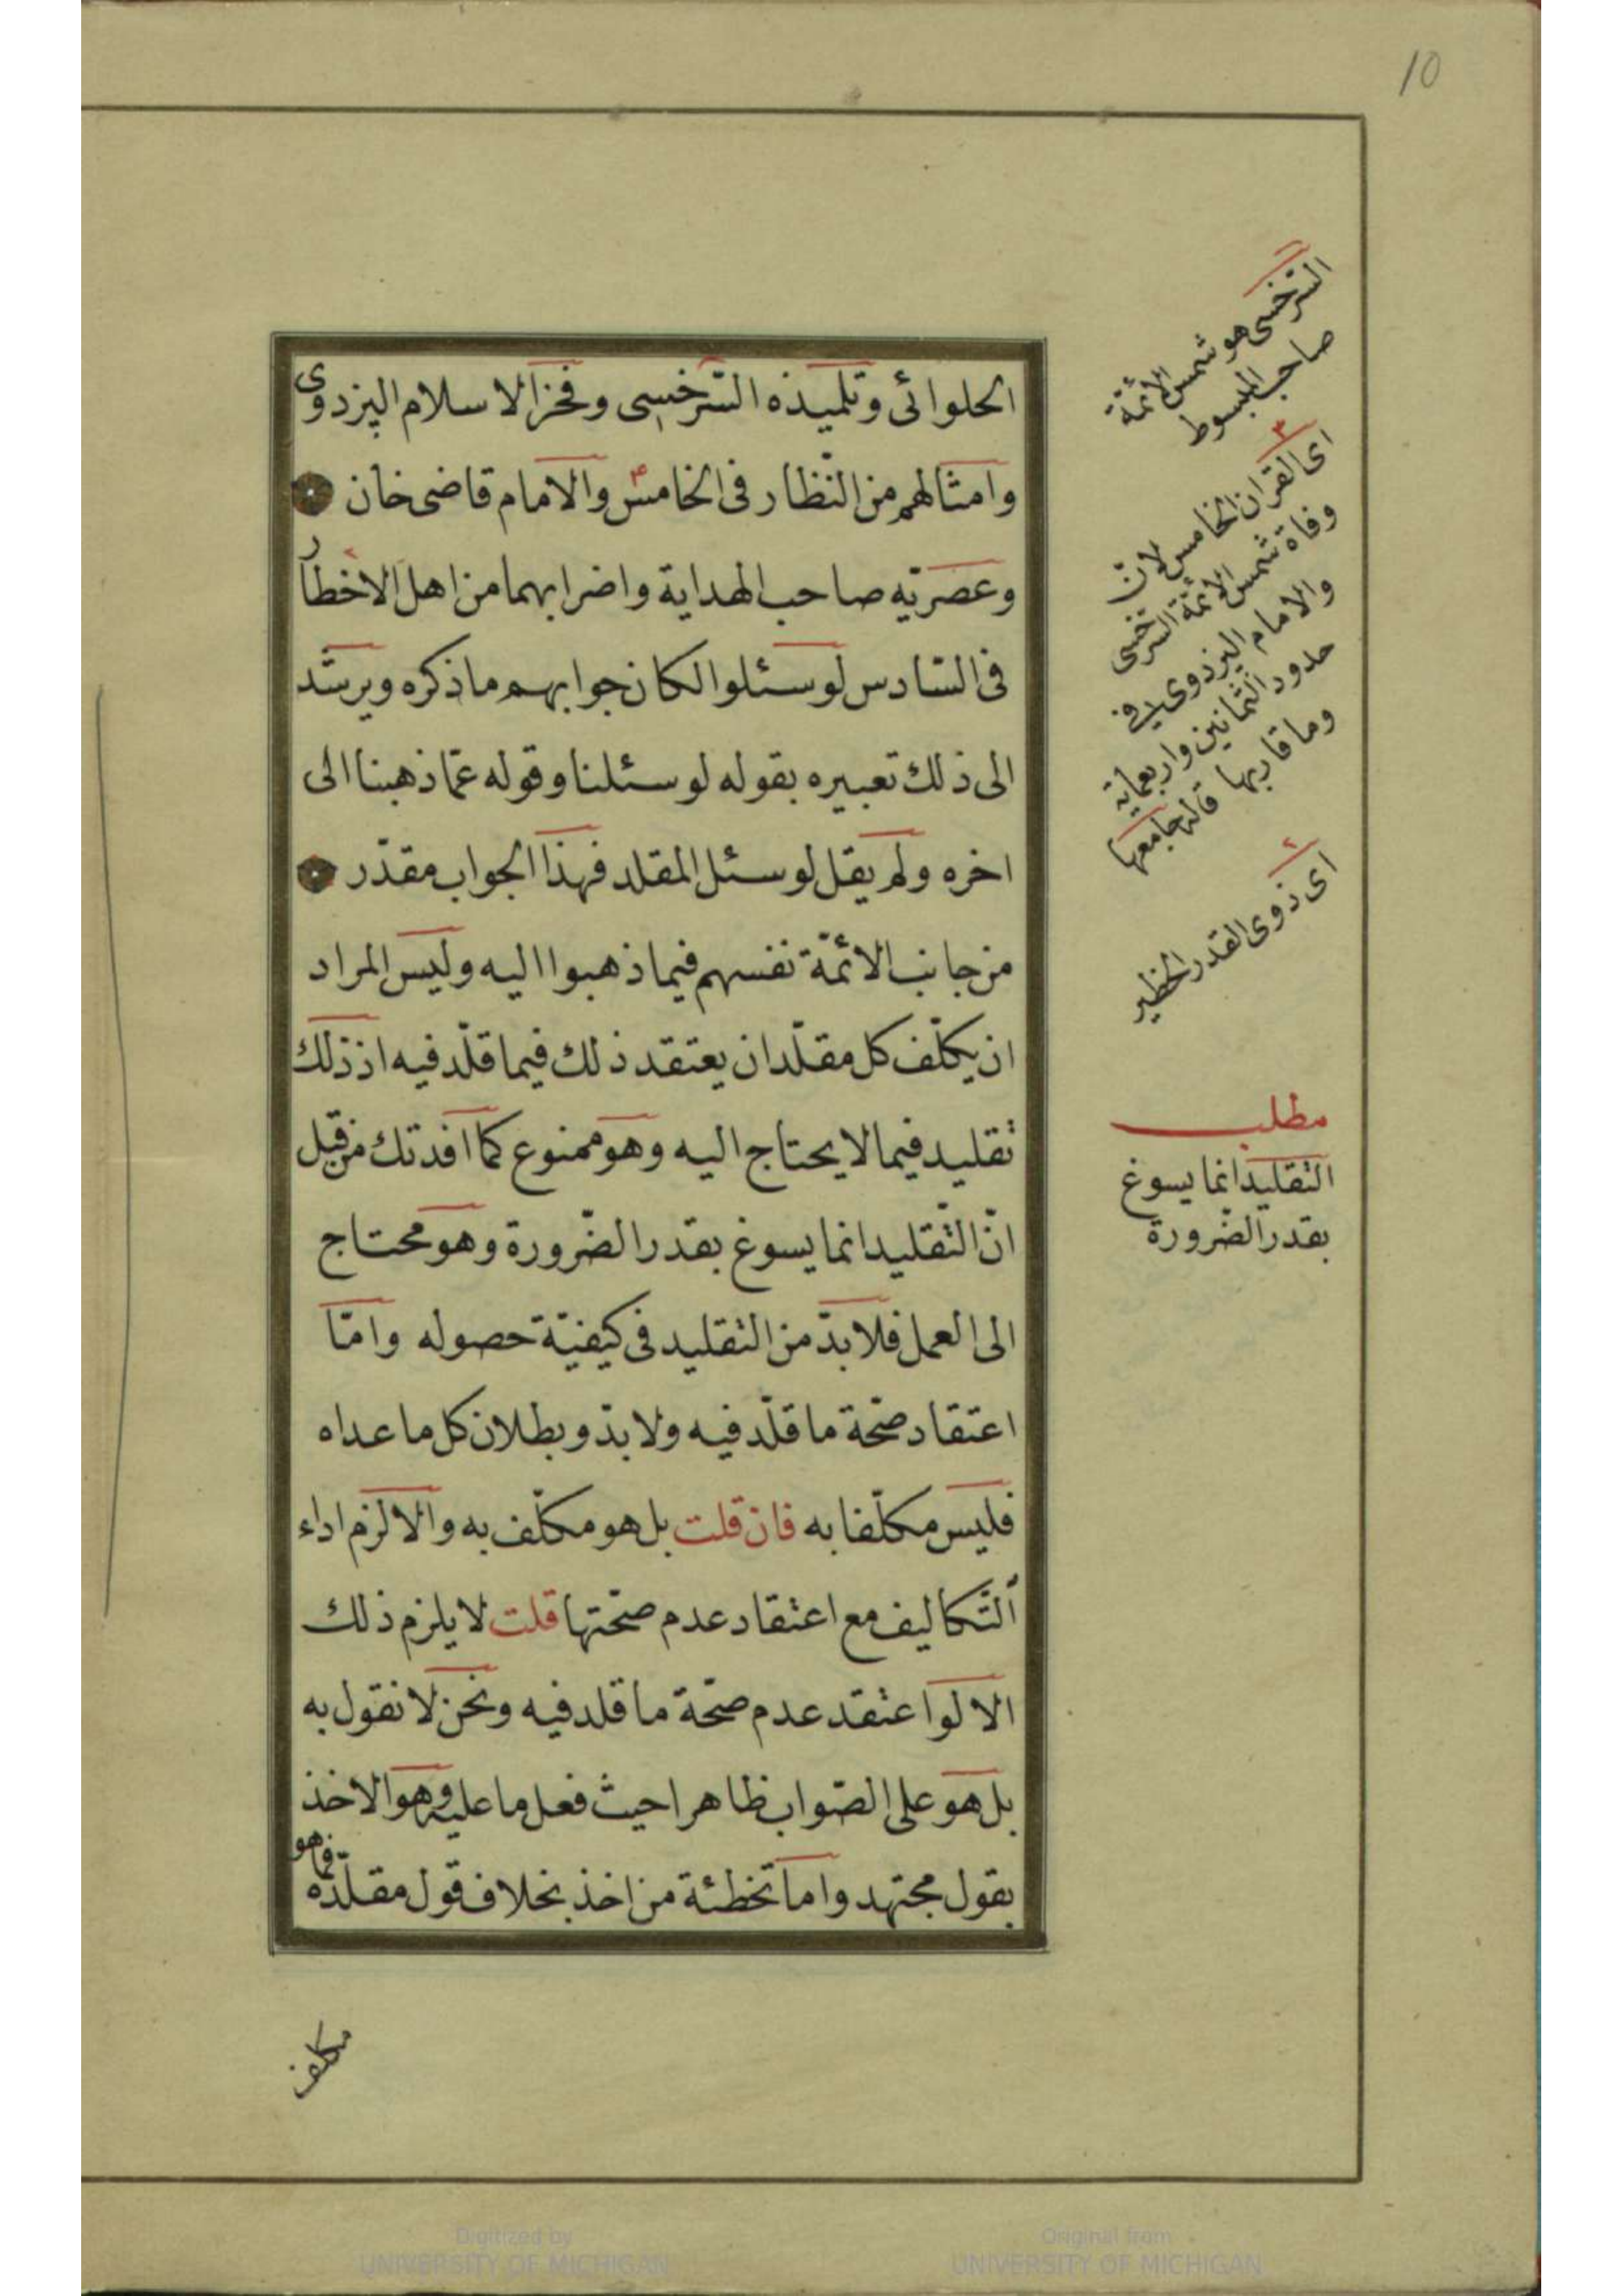 10
الحلوائى وتلميذه السّرخسى وفخر الاسلام البزدوى
وامثالهم من النّظار فى الخامس والامام قاضى خان
وعصريّه صاحب الهداية واضرابهما من اهل الاخطار
فى السّادس لو سئلوا لكان جوابهم ما ذكره ويرشد
الى ذلك تعبيره بقوله لو سئلنا وقوله عمّا ذهبنا الى
اخره ولم يقل لو سئل المقلد فهذا الجواب مقدّر
من جانب الائمّة نفسهم فيما ذهبوا اليه وليس المراد
ان يكلّف كل مقلّد ان يعتقد ذلك فيما قلّد فيه اذ ذلك
تقليد فيما لا يحتاج اليه وهو ممنوع كما افدتك من قبل
انّ التّقليد انما يسوغ بقدر الضّرورة وهو محتاج
الى العمل فلا بدّ من التقليد فى كيفيّة حصوله وامّا
اعتقاد صحّة ما قلّد فيه ولا بدّ وبطلان كل ما عداه
فليس مكلّفا به فان قلت بل هو مكلّف به والا لزم اداء
التّكاليف مع اعتقاد عدم صحّتها قلت لا يلزم ذلك
الا لو اعتقد عدم صحّة ما قلد فيه ونحن لا نقول به
بل هو على الصّواب ظاهرا حيث فعل ما عليه وهو الاخذ
بقول مجتهد واما تخطئة من اخذ بخلاف قول مقلّده فما هو
مكلف
السّرخسى هو شمس الائمّة
صاحب المبسوط
٣
اى القران الخامس لانّ
وفاة شمس الائمّة السرخسى
والامام البزدوى فى
حدود الثمانين واربعماية
وما قاربها قاله جامعها
اى ذوى القدر الخطير
مطلب
التقليد انّما يسوغ
بقدر الضرورة
Digitized by
UNIVERSITY OF MICHIGAN
Original from
UNIVERSITY OF MICHIGAN